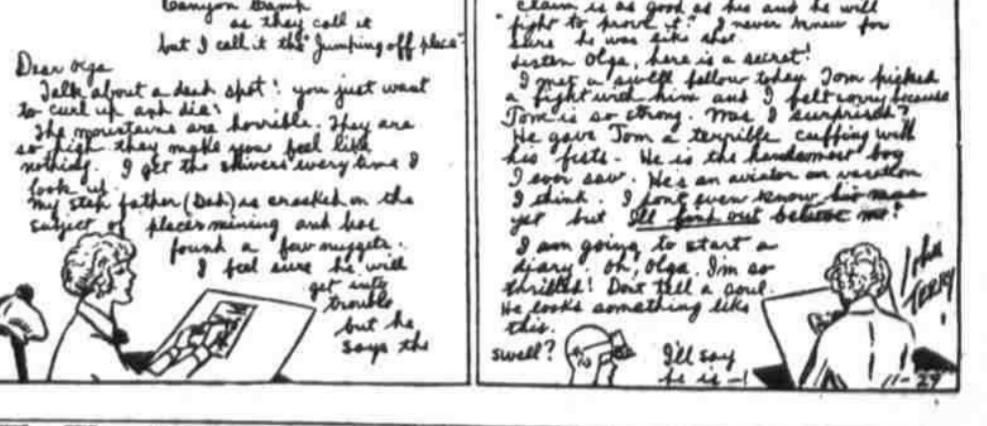 Canyon Camp
as they call it
but I call it the "Jumping off place".
Dear Olga
Talk about a dead spot! you just want
to curl up and die!
The mountains are horrible. They are
so high they make you feel like
nothing. I get the shivers every time I
look up.
My step father (Dad) is cracked on the
subject of placer mining and has
found a few nuggets.
I feel sure he will
get into
trouble
but he
says the
claim is as good as his and he will
fight to prove it." I never knew for
sure he was like that.
Listen Olga, here is a secret!
I met a swell fellow today. Tom picked
a fight with him and I felt sorry because
Tom is so strong. Was I surprised?
He gave Tom a terrible cuffing with
his fists. He is the handsomest boy
I ever saw. He's an aviator on vacation
I think. I dont even know his name
yet but I'll find out believe me!
I am going to start a
diary. Oh, Olga. I'm so
thrilled! Dont tell a soul.
He looks something like
this.
swell?
I'll say
he is —!
John
TERRY
11-29